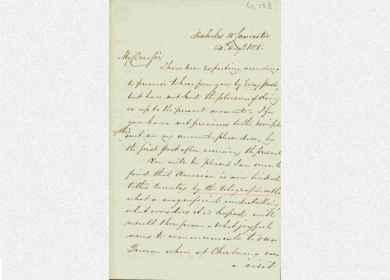 14th Augt 1858.
My Dear Sir,
I have been expecting according
to promise to hear from you by Every Post,
but have not had the pleasure of doing
so up to the present moment. If
you have not previous to the receipt
of this sent me my account, please do so by
the first post after receiving the present
You will be pleased I am sure to
find that America is now linked
to this Country by the telegraph cable
what a magnificent undertaking
what wonders it is hoped will
result therefrom - what joyful
news to communicate to our
Queen when at Cherbourg on
a visit